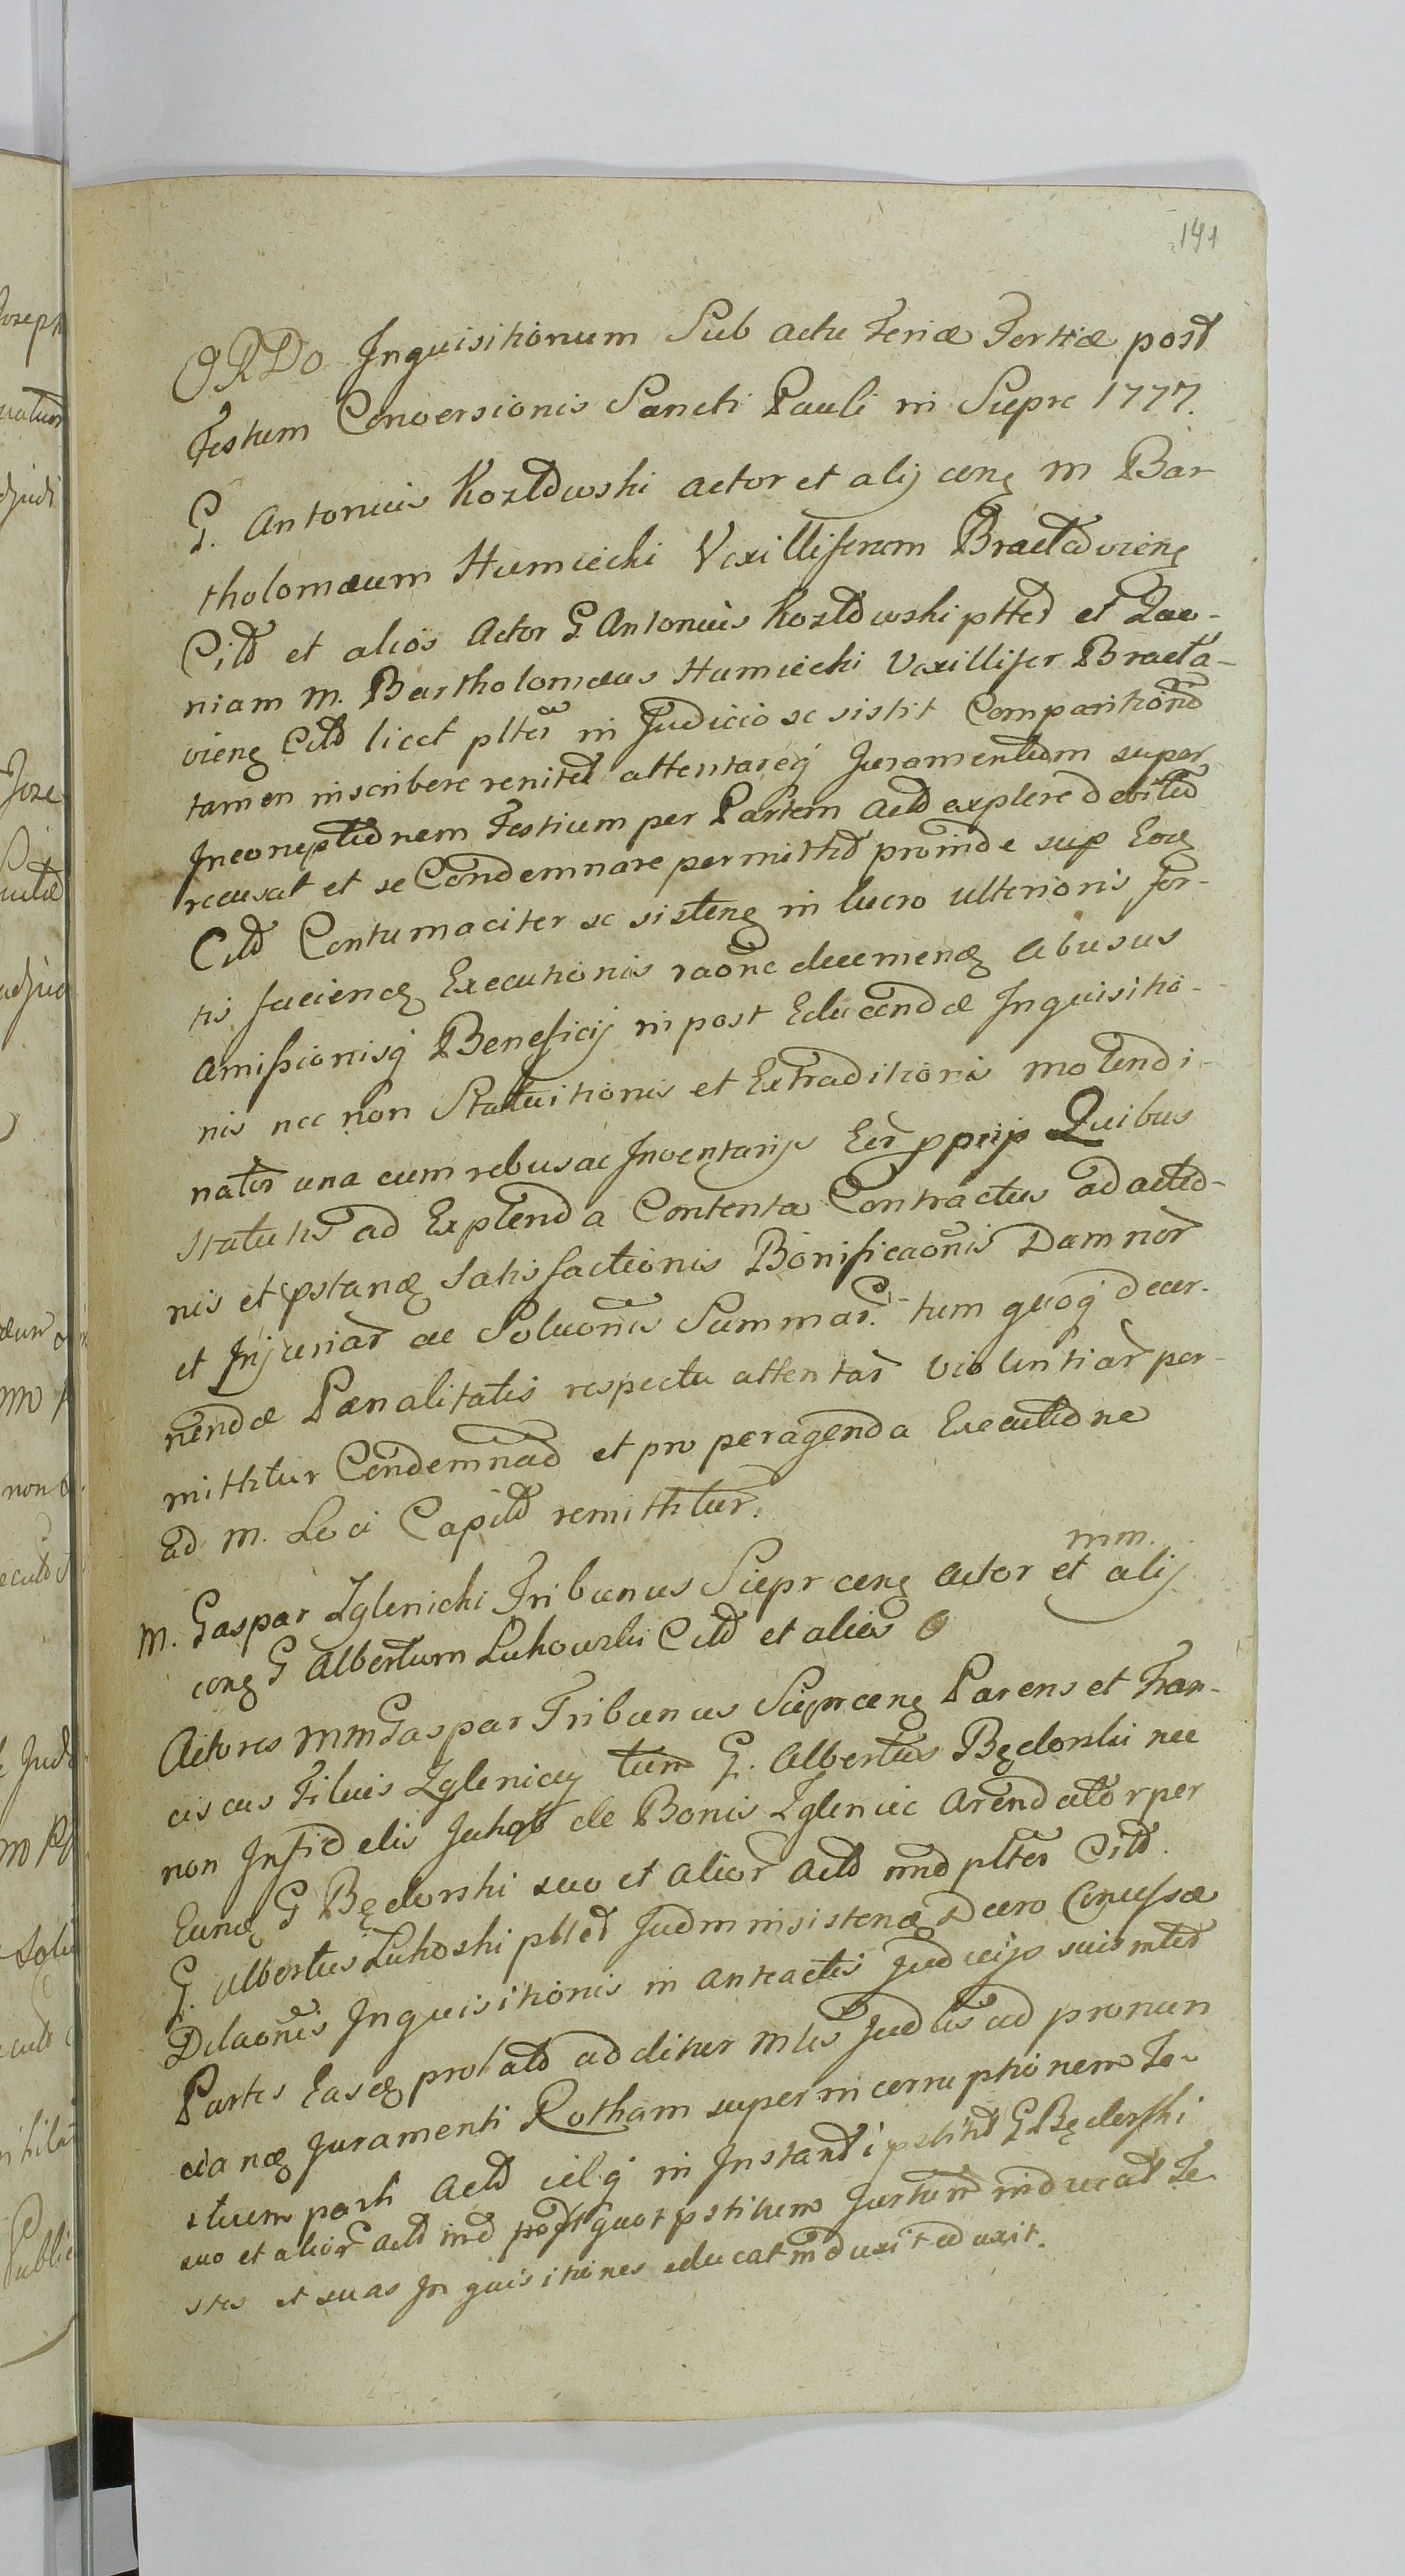 141
ORDO Inquisitionum Sub actu Feriæ Tertiæ post
Festum Conversionis Sancti Pauli in Siepre 1777.
G. Antonius Kozłowski actor et alij cong M Bar
tholomæum Humiecki Vexilliferum Bracłavieng
Citd et alios Actor G. Antonius Kozłowski pltes et Quo-
niam M. Bartholomæus Humiecki Vexillifer Bracła-
vieng Citd licet pltes in Judicio se sistit Comparitiond
tamen inscribere renitet attentareq Juramentum super
Incorruptionem Testium per Partem Actd explere debitud
recusat et se Condemnare permittit proinde sup Eoq
Citd Contumaciter se sisteng in lucro ulterioris for-
tis faciendæ Executionis raone decernendæ abusus
Amissionisq Beneficij in post Educendæ Inquisitio-
nis nec non Statuitionis et Extraditionis molendi-
nator una cum rebus ac Inventarijs Eor pprijs Quibus
Statutis ad Explenda Contenta Contractus ad actio-
nis et pstandæ Satisfactionis Bonificaonis Damnor
et Injuriar ac Soluonis Summar. tum quoq decer-
nendæ Pænalitatis respectu attentar Violentiar per-
mittitur Condemnad et pro peragenda Executione
ad M. Loci Capitd remittitur.
mm.
M. Gaspar Zglenicki Tribunus Sieprceng Actor et alij
cong G Albertum Lukowski Citd et alios
Actores MM Gaspar Tribunus Sieprceng Parens et Fran-
ciscus Filius Zgleniccy tum G. Albertus Będorski nec
non Infidelis Jakob de Bonis Zglenic Arendator per
Eundæ G Będorski suo et alior Actd nnd pltes Citd.
G. Albertus Lukoski pltes Judm insistendæ Decro Comissæ
Dilaonis Inquisitionis in anteactis Judicijs suis inter
Partes Easdæ prolatd additur Mtis Judlis ad pronun
ciandæ Juramenti Rotham super incorruptionem Te-
stium parti Actd uelq in Instanti pstitit G Będorski
suo et alior Actd nnd postquor pstitum Jurtum inducat Te-
stes et suas Inquisitiones educat induxit eduxit.